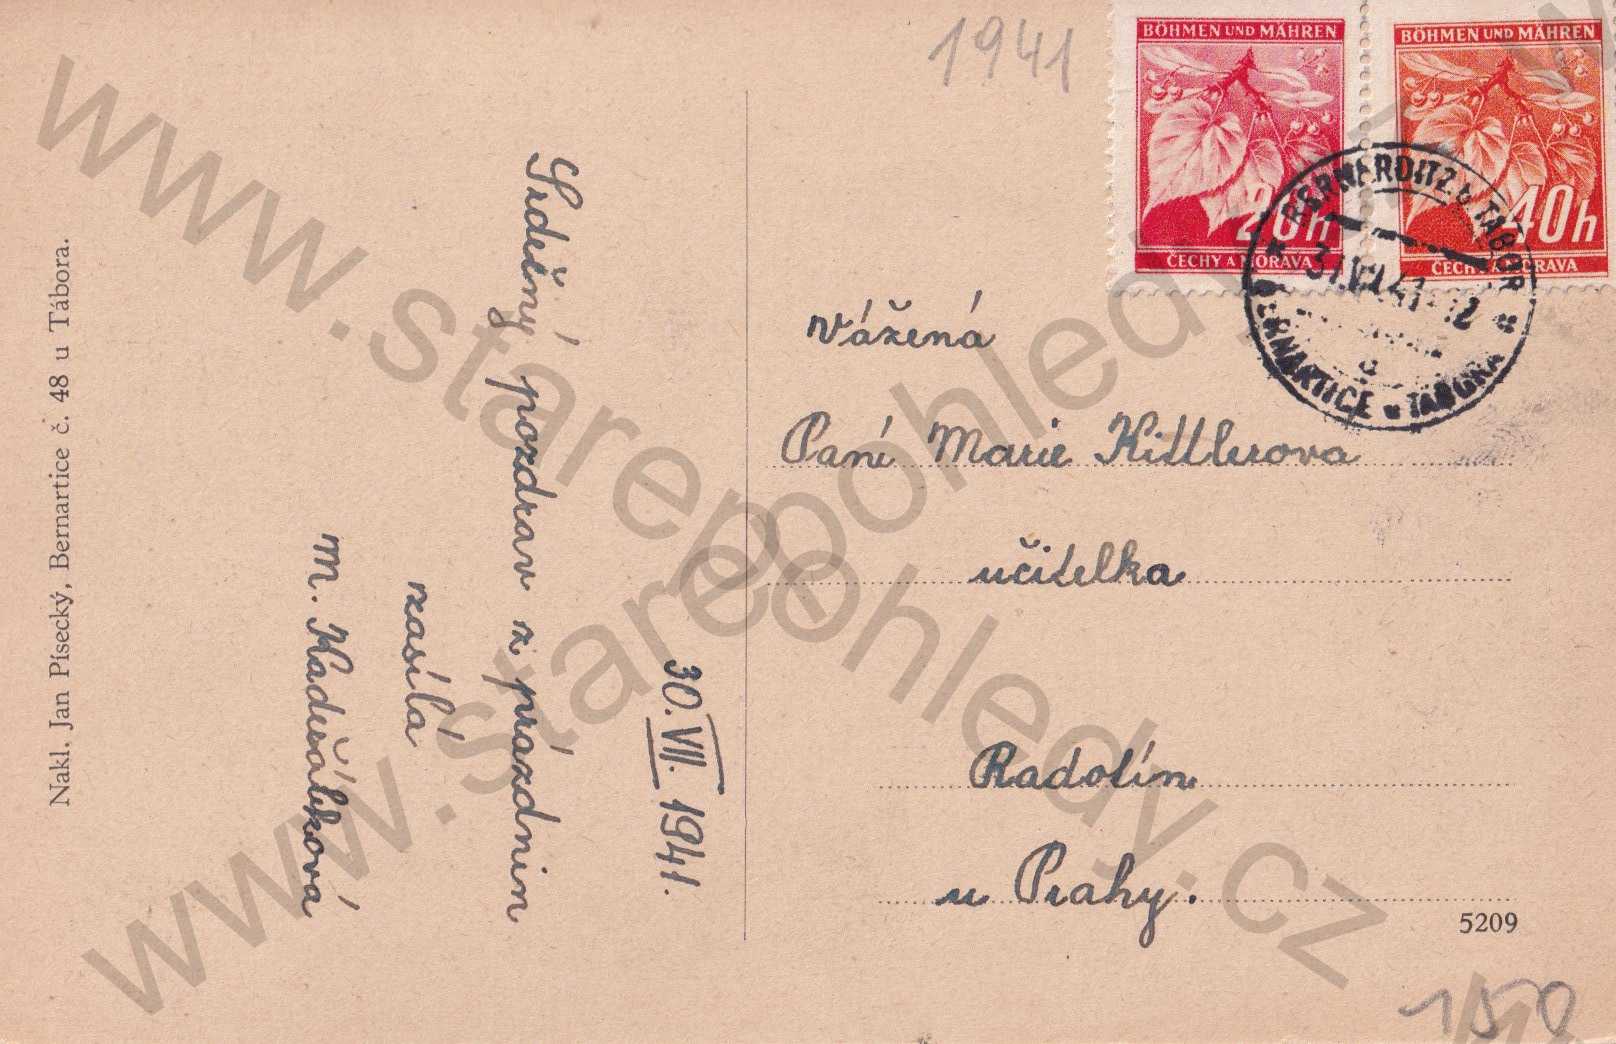 Nakl. Jan Písecký, Bernartice č. 48 u Tábora.
30. VII. 1941.
Srdečný pozdrav z prázdnin
zasílá
M. Kadeřábková
1941
BÖHMEN UND MÄHREN
20h
ČECHY A MORAVA
BÖHMEN UND MÄHREN
40h
ČECHY A MORAVA
BERNARDITZ b. TABOR
31.VII.41-12
a
BERNARTICE u TÁBORA
Vážená
Paní Marie Kittlerova
učitelka
Radotín
u Prahy.
5209
150
www.starepohledy.cz
www.starepohledy.cz